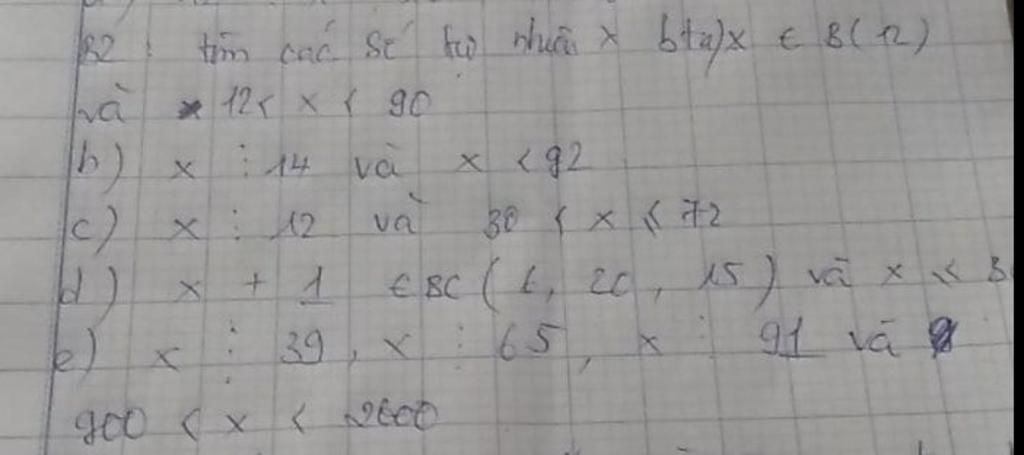 B2: tìm các số tự nhiên x bt a) x ∈ B(12)
và 12 < x < 90
b) x ⋮ 14 và x < 92
c) x ⋮ 12 và 30 < x ≤ 72
d) x + 1 ∈ BC (6, 20, 15) và x ≤
e) x ⋮ 39, x ⋮ 65, x ⋮ 91 và
900 < x < 2600